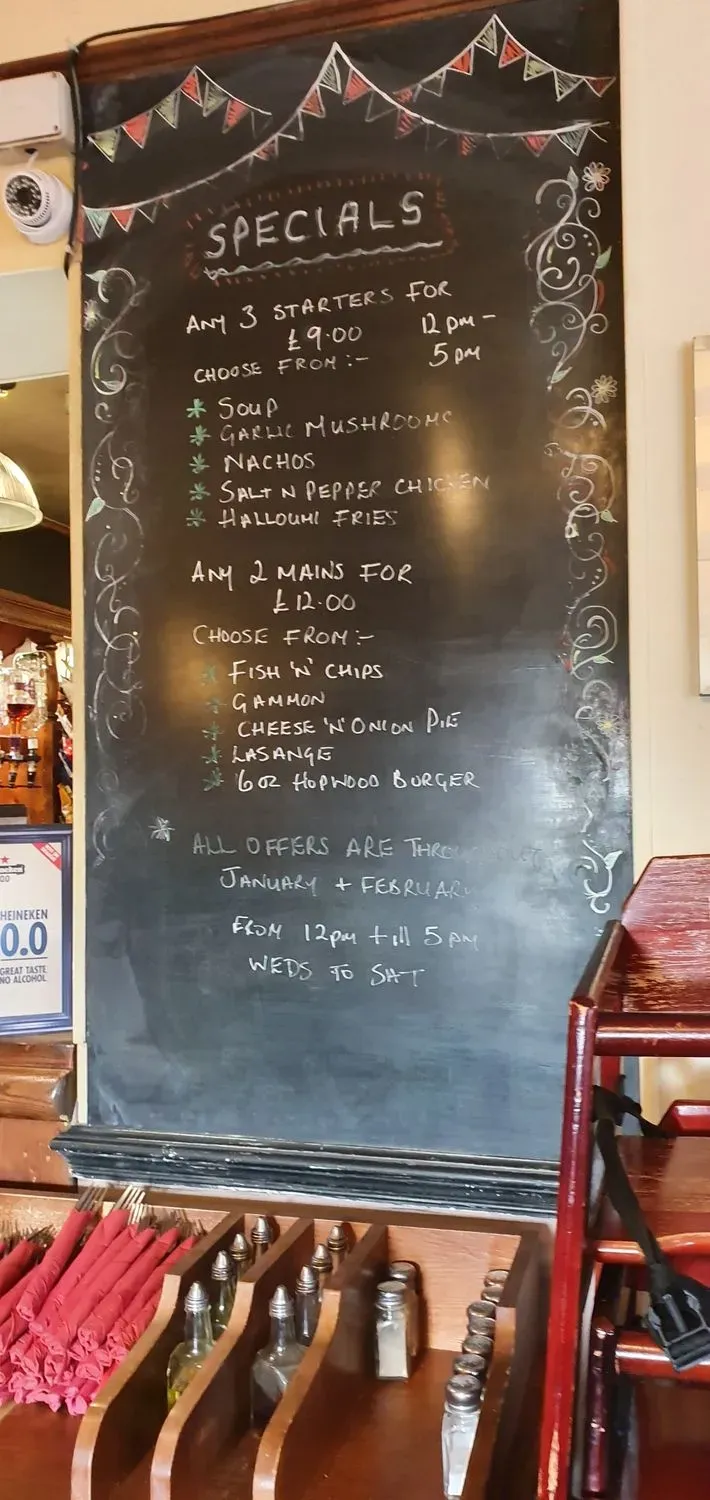 SPECIALS
ANY 3 STARTERS FOR
£9.00
12pm -
5pm
CHOOSE FROM :-
SOUP
GARLIC MUSHROOMS
NACHOS
SALT N PEPPER CHICKEN
HALLOUMI FRIES
ANY 2 MAINS FOR
£12.00
CHOOSE FROM :-
FISH 'N' CHIPS
GAMMON
CHEESE 'N' ONION PIE
LASANGE
6oz HOPWOOD BURGER
* ALL OFFERS ARE THROUGHOUT
JANUARY + FEBRUARY
FROM 12pm till 5pm
WEDS TO SAT
HEINEKEN
0.0
GREAT TASTE
NO ALCOHOL